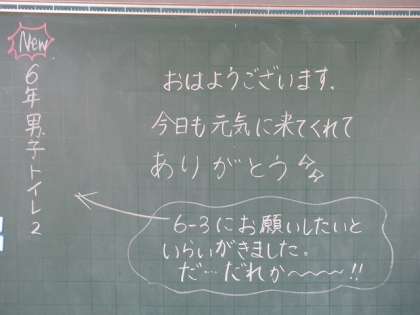 New
6年男子トイレ2
おはようございます.
今日も元気に来てくれて
ありがとう
6-3にお願いしたいと
いらいがきました。
だ…だれか〜〜〜〜!!